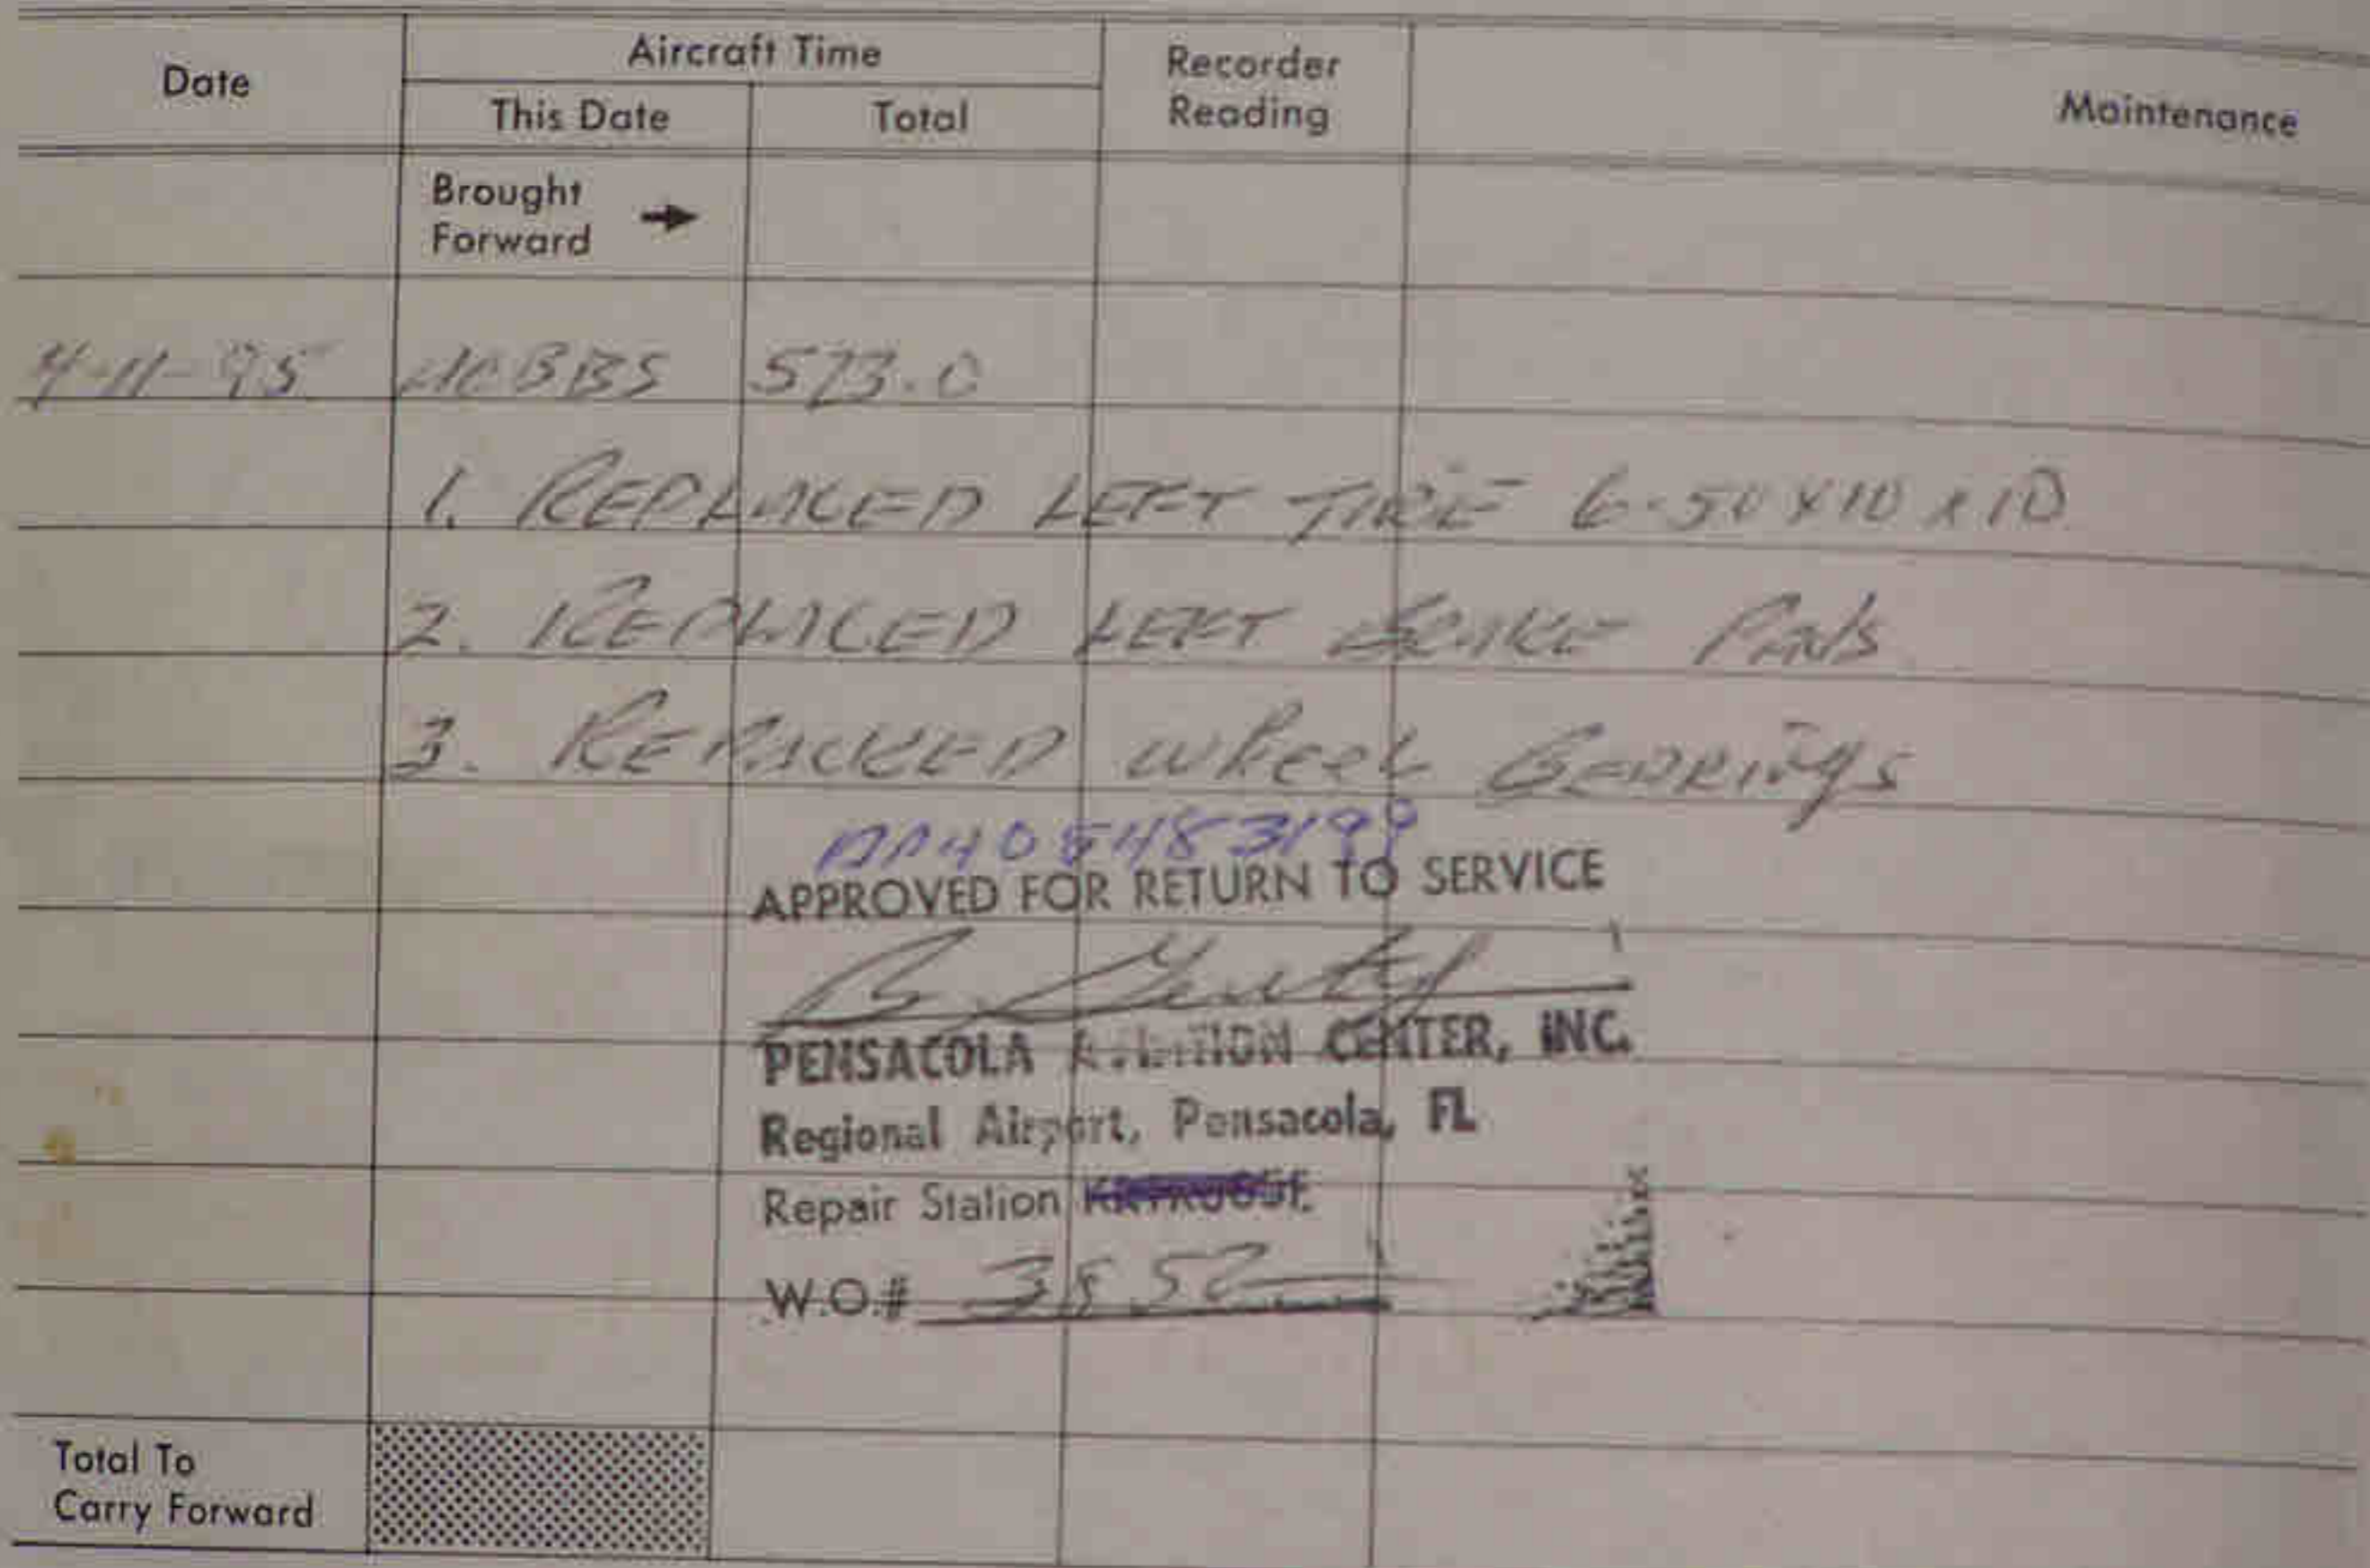 Date Aircraft Time Recorder Reading Maintenance
This Date Total
Brought Forward →
4-11-95 HOBBS 573.0
1. REPLACED LEFT TIRE 6-50 X10 X 10
2. REPLACED LEFT BRAKE PADS
3. REPACKED wheel BEARINGS
405483199
APPROVED FOR RETURN TO SERVICE
B.
PENSACOLA AVIATION CENTER, INC.
Regional Airport, Pensacola, FL
Repair Station
W.O.# 3852
Total To Carry Forward